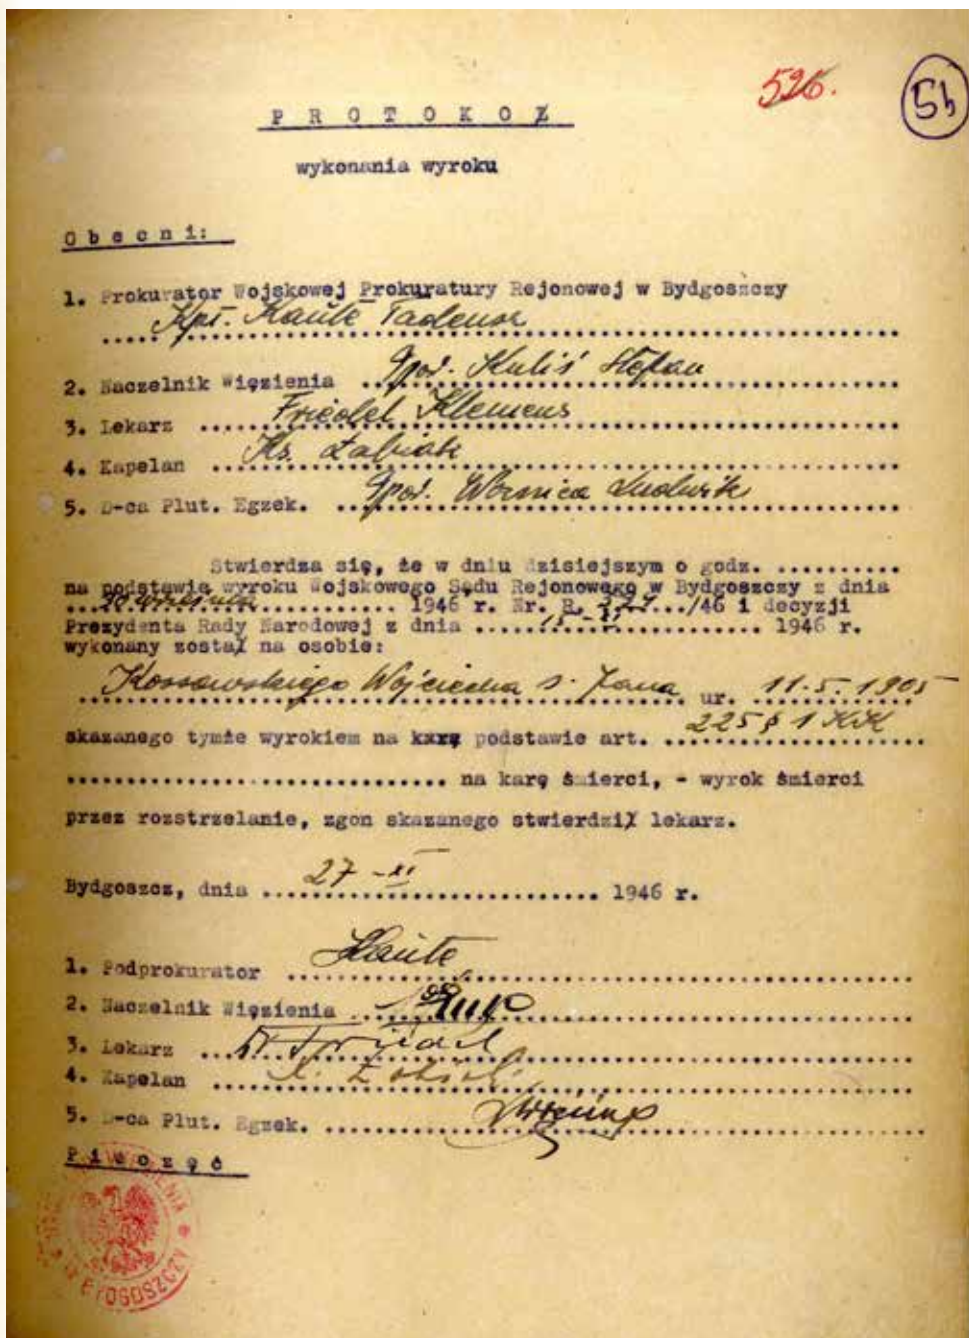 526.
5b
P R O T O K O Ł
wykonania wyroku
O b e c n i:
1. Prokurator Wojskowej Prokuratury Rejonowej w Bydgoszczy
Kpt. Haute Tadeusz
2. Naczelnik Więzienia ... Ppor. Kuliś Stefan
3. Lekarz ... Friedel Klemens
4. Kapelan ... Ks. Żabiak
5. D-ca Plut. Egzek. ... Ppor. Woźnica Ludwik
Stwierdza się, że w dniu dzisiejszym o godz. ...........
na podstawie wyroku Wojskowego Sądu Rejonowego w Bydgoszczy z dnia
20 września 1946 r. Nr. R. 227 /46 i decyzji
Prezydenta Rady Narodowej z dnia ... 15-XI ... 1946 r.
wykonany został na osobie:
Kossowskiego Wojciecha s. Jana ur. 11.5.1905
skazanego tymże wyrokiem na karę podstawie art. 225 § 1 KK
................................ na karę śmierci, - wyrok śmierci
przez rozstrzelanie, zgon skazanego stwierdził lekarz.
Bydgoszcz, dnia ... 27-XI ... 1946 r.
1. Podprokurator ... Haute
2. Naczelnik Więzienia ...
3. Lekarz ... Friedel
4. Kapelan ...
5. D-ca Plut. Egzek. ...
P i e c z ę ć
W BYDGOSZCZY